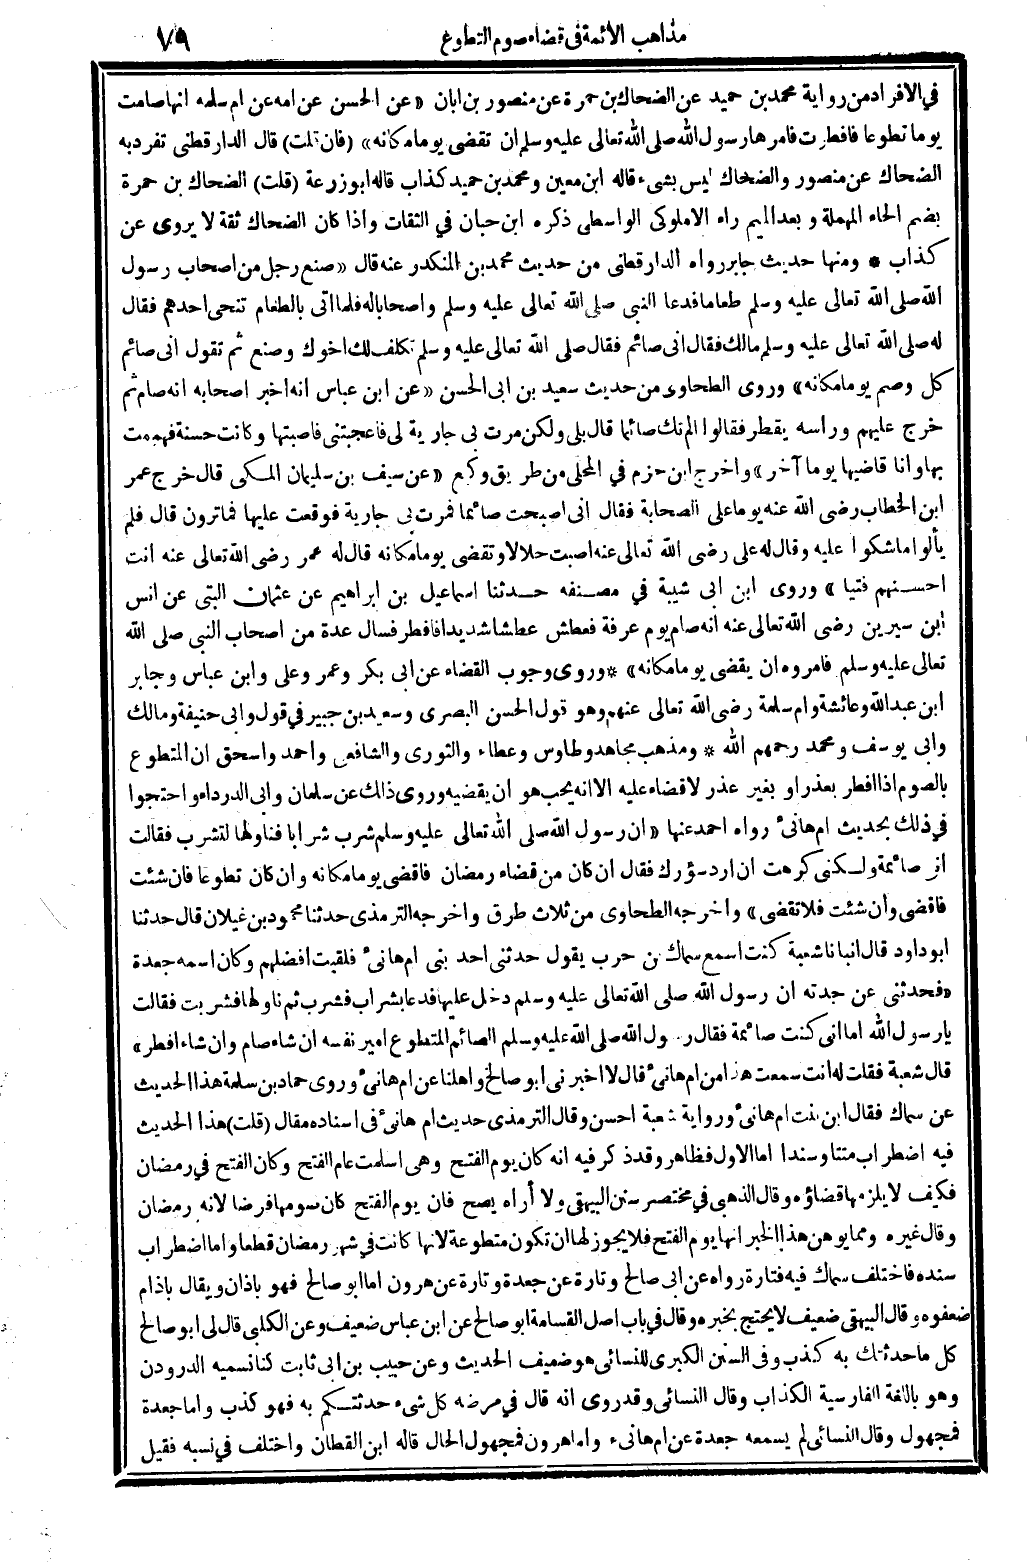 مذاهب الأئمة في قضاء صوم التطوع ٧٩
في الافراد من رواية محمد بن حميد عن الضحاك بن حمرة عن منصور بن ابان «عن الحسن عن امه عن ام سلمه انها صامت
يوما تطوعا فافطرت فامرها رسول الله صلى الله تعالى عليه وسلم ان تقضى يوما مكانه» (فان قلت) قال الدارقطنى تفرد به
الضحاك عن منصور والضحاك ليس بشىء قاله ابن معين ومحمد بن حميد كذاب قاله ابو زرعة (قلت) الضحاك بن حمرة
بضم الحاء المهملة وبعد الميم راء الاملوكى الواسطى ذكره ابن حبان في الثقات واذا كان الضحاك ثقة لا يروى عن
كذاب * ومنها حديث جابر رواه الدارقطنى من حديث محمد بن المنكدر عنه قال «صنع رجل من اصحاب رسول
الله صلى الله تعالى عليه وسلم طعاما فدعا النبي صلى الله تعالى عليه وسلم واصحابا له فلما اتى بالطعام تنحى احدهم فقال
له صلى الله تعالى عليه وسلم مالك فقال انى صائم فقال صلى الله تعالى عليه وسلم تكلف لك اخوك وصنع ثم تقول انى صائم
كل وصم يوما مكانه» وروى الطحاوى من حديث سعيد بن ابى الحسن «عن ابن عباس انه اخبر اصحابه انه صام ثم
خرج عليهم ورأسه يقطر فقالوا الم تك صائما قال بلى ولكن مرت بى جارية لى فاعجبتنى فاصبتها وكانت حسنة فهممت
بها وانا قاضيها يوما آخر» واخرج ابن حزم في المحلى من طريق وكيع «عن سيف بن سليمان المكى قال خرج عمر
ابن الخطاب رضى الله عنه يوما على الصحابة فقال انى اصبحت صائما فمرت بى جارية فوقعت عليها فماترون قال فلم
يألوا ماشكوا عليه وقال له على رضى الله تعالى عنه اصبت حلالا وتقضى يوما مكانه قال له عمر رضى الله تعالى عنه انت
احسنهم فتيا» وروى ابن ابى شيبة في مصنفه حدثنا اسماعيل بن ابراهيم عن عثمان البتى عن انس
ابن سيرين رضى الله تعالى عنه انه صام يوم عرفة فعطش عطشا شديدا فافطر فسال عدة من اصحاب النبى صلى الله
تعالى عليه وسلم فامروه ان يقضى يوما مكانه» * وروى وجوب القضاء عن ابى بكر وعمر وعلى وابن عباس وجابر
ابن عبدالله وعائشة وام سلمة رضى الله تعالى عنهم وهو قول الحسن البصرى وسعيد بن جبير في قول وابى حنيفة ومالك
وابى يوسف ومحمد رحمهم الله * ومذهب مجاهد وطاوس وعطاء والثورى والشافعى واحمد واسحق ان المتطوع
بالصوم اذا افطر بعذر او بغير عذر لا قضاء عليه الا انه يحب هو ان يقضيه وروى ذلك عن سلمان وابى الدرداء واحتجوا
في ذلك بحديث ام هانئ رواه احمد عنها «ان رسول الله صلى الله تعالى عليه وسلم شرب شرابا فناولها لتشرب فقالت
انى صائمة ولكنى كرهت ان ارد سؤرك فقال ان كان من قضاء رمضان فاقضى يوما مكانه وان كان تطوعا فان شئت
فاقضى وان شئت فلا تقضى» واخرجه الطحاوى من ثلاث طرق واخرجه الترمذى حدثنا محمود بن غيلان قال حدثنا
ابو داود قال انبانا شعبة كنت اسمع سماك بن حرب يقول حدثنى احد بنى ام هانئ فلقيت افضلهم وكان اسمه جعدة
«فحدثنى عن جدته ان رسول الله صلى الله تعالى عليه وسلم دخل عليها فدعا بشراب فشرب ثم ناولها فشربت فقالت
يارسول الله اما انى كنت صائمة فقال رسول الله صلى الله عليه وسلم الصائم المتطوع امير نفسه ان شاء صام وان شاء افطر»
قال شعبة فقلت له انت سمعت هذا من ام هانئ قال لا اخبرنى ابو صالح واهلنا عن ام هانئ وروى حماد بن سلمة هذا الحديث
عن سماك فقال ابن بنت ام هانئ ورواية شعبة احسن وقال الترمذى حديث ام هانئ في اسناده مقال (قلت) هذا الحديث
فيه اضطراب متنا وسندا اما الاول فظاهر وقد ذكر فيه انه كان يوم الفتح وهى اسلمت عام الفتح وكان الفتح في رمضان
فكيف لا يلزمها قضاؤه وقال الذهبى في مختصر سنن البيهقى ولا أراه يصح فان يوم الفتح كان صومها فرضا لانه رمضان
وقال غيره ومما يوهن هذا الخبر انها يوم الفتح فلا يجوز لها ان تكون متطوعة لانها كانت في شهر رمضان قطعا واما اضطراب
سنده فاختلف سماك فيه فتارة رواه عن ابى صالح وتارة عن جعدة وتارة عن هرون اما ابو صالح فهو باذان ويقال باذام
ضعفوه وقال البيهقى ضعيف لا يحتج بخبره وقال في باب اصل القسامة ابو صالح عن ابن عباس ضعيف وعن الكلبى قال لى ابو صالح
كل ماحدثتك به كذب وفى السنن الكبرى للنسائى هو ضعيف الحديث وعن حبيب بن ابى ثابت كنا نسميه الدرودن
وهو باللغة الفارسية الكذاب وقال النسائى وقد روى انه قال في مرضه كل شىء حدثتكم به فهو كذب واما جعدة
فمجهول وقال النسائى لم يسمعه جعدة عن ام هانىء واما هرون فمجهول الحال قاله ابن القطان واختلف في نسبه فقيل